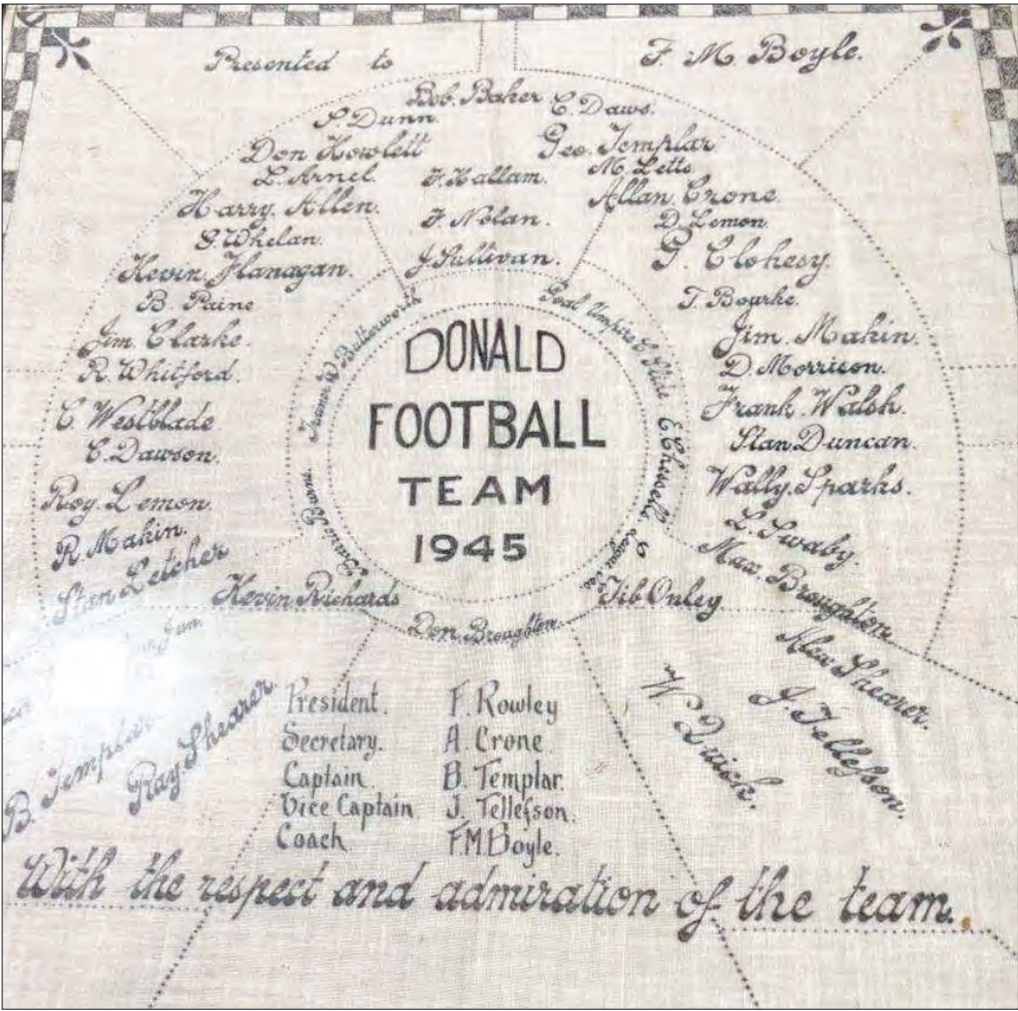 Presented to F. M. Boyle.
Bob. Baker
C. Daws.
S. Dunn.
Don Howlett
Geo. Templar
L. Arnel.
F. Hallam.
M. Letts
Harry. Allen.
Allan. Crone.
F. Nolan.
D. Lemon.
G. Whelan.
J. Sullivan.
G. Clohesy.
Kevin Flanagan.
B. Paine
T. Bourke.
Jim. Clarke.
Jim. Makin.
R. Whitford.
D. Morrison.
C. Westblade
Frank. Walsh.
C. Dawson.
Stan Duncan.
Roy. Lemon.
Wally. Sparks.
R. Makin.
L. Swaby.
Stan Letcher
Max. Broughton.
Kevin Richards
Tib Onley
Don. Broughton.
Alex Shearer.
J. Tellefson.
W. Duich.
B. Templar
Ray. Shearer.
Trainer W Butterworth
Goal Umpire C.
E. Chisell.
DONALD
FOOTBALL
TEAM
1945
President. F. Rowley
Secretary. A. Crone
Captain B. Templar.
Vice Captain J. Tellefson.
Coach F M Boyle.
With the respect and admiration of the team.